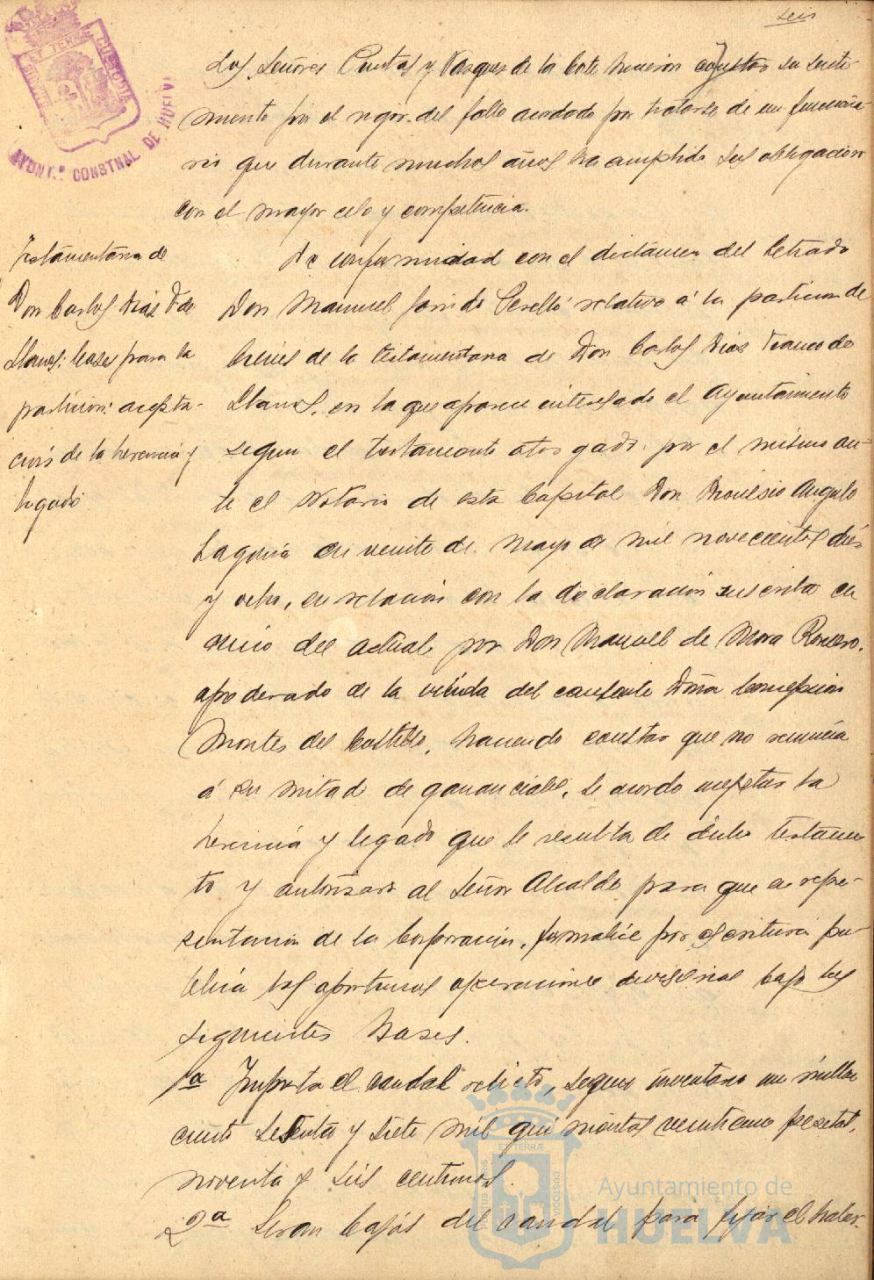 seis
AYUNT.º CONSTNAL DE HUELVA
Los Señores Cuetos y Vazquez de la Corte hicieron constar su senti-
miento por el rigor del fallo acordado por tratarse de un funciona-
rio que durante muchos años ha cumplido sus obligacion
con el mayor celo y competencia.
Testamentaria de
Don Carlos Dias F. de
Llanos: bases para la
particion: acepta-
ción de la herencia y
legado
De conformidad con el dictámen del Letrado
Don Manuel de relativo á la particion de
bienes de la testamentaria de Don Carlos Dias Franco de
Llanos, en la que aparece interesado el Ayuntamiento
segun el testamento otorgado por el mismo an-
te el Notario de esta Capital Don Dionisio Angulo
Laguna en veinte de Mayo de mil novecientos diez
y ocho, en relación con la declaración suscrita en
cinco del actual por Don Manuel de Mora Romero,
apoderado de la viuda del causante Doña Concepcion
Montes del Castillo, haciendo constar que no renuncia
á su mitad de gananciales, se acordo aceptar la
herencia y legado que le resulta de dicho testamen-
to y autorizar al Señor Alcalde para que en repre-
sentación de la Corporación, formalice por escritura pu-
blica las oportunas operaciones divisorias bajo las
siguientes bases.
1ª Importa el caudal relicto, segun inventario un millon
ciento sesenta y siete mil quinientas veintiuna pesetas,
noventa y seis centimos.
2ª Seran bajas del caudal para fijar el haber
Ayuntamiento de
HUELVA